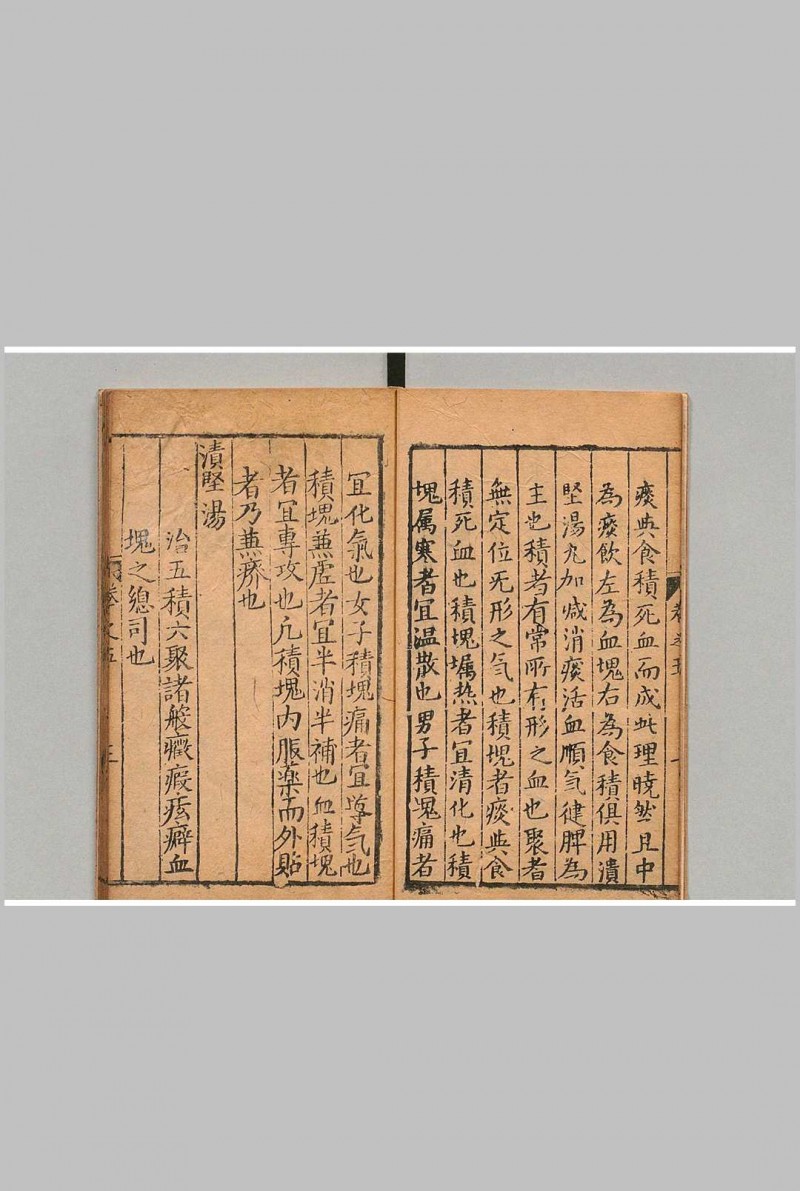 痰與食積死血而成此理曉然且中
為痰飲左為血塊右為食積俱用潰
堅湯丸加减消痰活血順氣健脾為
主也積者有常所有形之血也聚者
無定位无形之气也積塊者痰與食
積死血也積塊属热者宜清化也積
塊属寒者宜温散也男子積塊痛者
卷之五
宜化氣也女子積塊痛者宜導气也
積塊兼虚者宜半消半補也血積塊
者宜專攻也凢積塊内服藥而外貼
者乃兼療也
潰堅湯
治五積六聚諸般癥瘕痃癖血
塊之總司也
卷之五